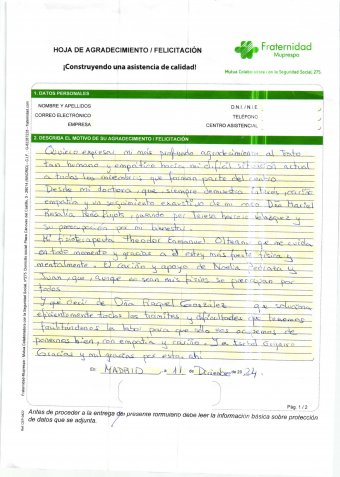 HOJA DE AGRADECIMIENTO / FELICITACIÓN
¡Construyendo una asistencia de calidad!
Fraternidad
Muprespa
Mutua Colaboradora con la Seguridad Social, 275
1. DATOS PERSONALES
NOMBRE Y APELLIDOS
D.N.I. / N.I.E.
CORREO ELECTRÓNICO
TELÉFONO
EMPRESA
CENTRO ASISTENCIAL
2. DESCRIBA EL MOTIVO DE SU AGRADECIMIENTO / FELICITACIÓN
Quiero expresar mi más profundo agradecimiento al trato
tan humano y empático hacia mi difícil situación actual
a todos los miembros que forman parte del centro
Desde mi doctora, que siempre demuestra cariño
empatía y un seguimiento exaustivo de mi Dña
Rosalía pasando por Teresa Vázquez y
su preocupación por mi bienestar.
Mi fisioterapeuta Theodor Emmanuel que me cuida
en todo momento y gracias a el estoy más fuerte física y
mentalmente. El cariño y apoyo de Noelia, y
Juan, que aunque no sean mis fisios se preocupan por
todos
Y que decir de Dña Raquel González que soluciona
eficientemente todos los trámites y dificultades que tenemos
facilitandonos la labor para que sólo nos ocupemos de
ponernos bien, con empatía y cariño.
Gracias y mil gracias por estar ahí
En MADRID a 11 de Diciembre de 2024.
Pág. 1 / 2
Antes de proceder a la entrega del presente formulario debe leer la información básica sobre protección
de datos que se adjunta.